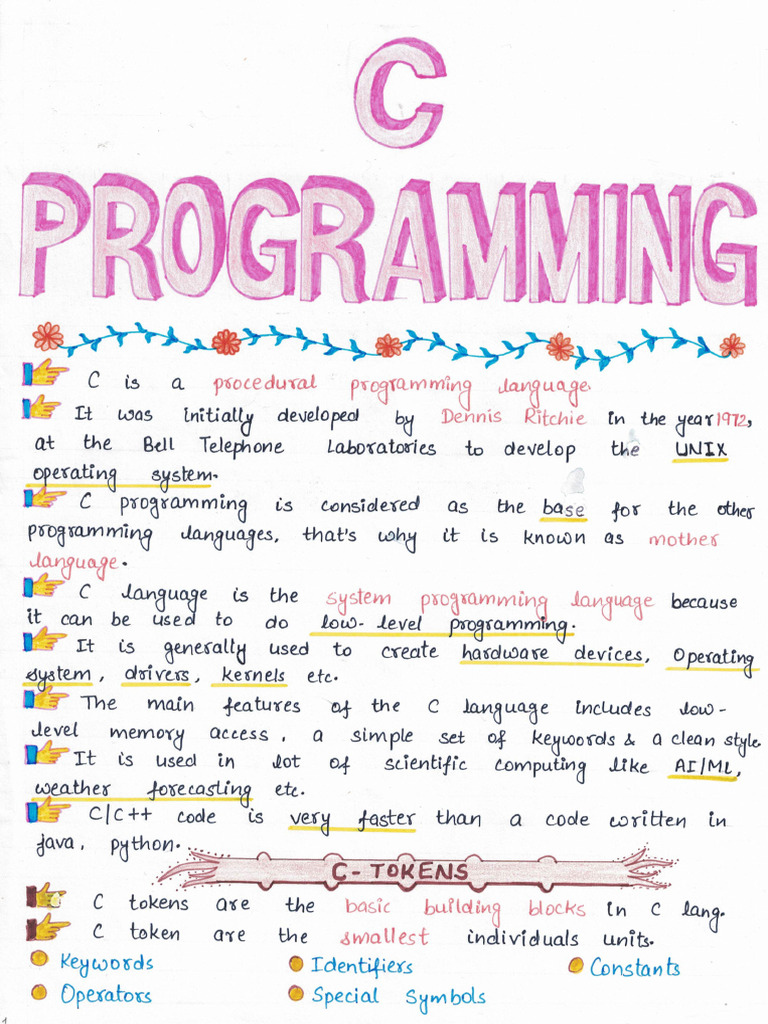 C
PROGRAMMING
C is a procedural programming language.
It was initially developed by Dennis Ritchie in the year 1972,
at the Bell Telephone Laboratories to develop the UNIX
operating system.
C programming is considered as the base for the other
programming languages, that's why it is known as mother
language.
C language is the system programming language because
it can be used to do low-level programming.
It is generally used to create hardware devices, Operating
system, drivers, kernels etc.
The main features of the C language includes low-
level memory access, a simple set of keywords & a clean style.
It is used in lot of scientific computing like AI/ML,
weather forecasting etc.
C/C++ code is very faster than a code written in
java, python.
C - TOKENS
C tokens are the basic building blocks in C lang.
C token are the smallest individuals units.
Keywords Identifiers Constants
Operators Special Symbols
1